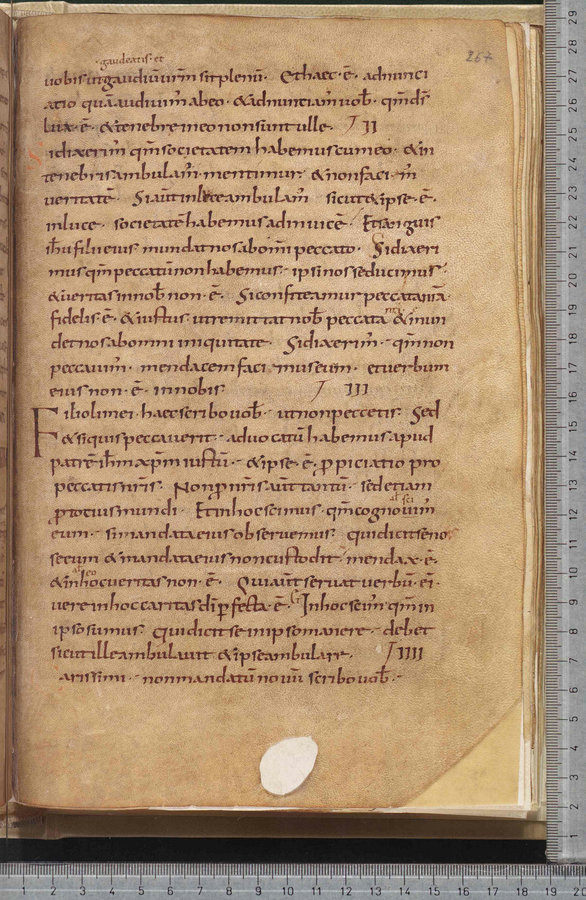 gaudeatis et
uobis ut gaudiū urm̄ sit plenū· Et haec ē· adnunci
atio quā audiuim̄ ab eo· & adnuntiam̄ uob̄· qm̄ ds̄
lux· ē· & tenebre in eo non sunt ulle· II
idixerim̄ qm̄ societatem habemus cum eo· & in
tenebris ambulam̄ mentimur· & non faci m̄
ueritatē· Si aūt in luce ambulam̄ sicut & ipse· ē·
in luce· societatē habemus ad inuicē· Et sanguis
ih̄u filii eius mundat nos ab om̄i peccato· Si dixeri
mus qm̄ peccatū non habemus· ipsi nos seducimus·
& ueritas in nob̄ non· ē· Si confiteamur peccata nr̄a·
fidelis· ē· & iustus ut remittat nob̄ peccata nr̄a & mun
det nos ab omni iniquitate· Si dixerim̄· qm̄ non
peccauim̄· mendacem facimus eum· et uerbum
eius non· ē· in nobis· III
Filioli mei· haec scribo uob̄· ut non peccetis· Sed
& si quis peccauerit· aduocatū habemus apud
patrē ih̄m xp̄m iustū· & ipse· ē· ppiciatio pro
peccatis nr̄is· Non p nr̄is aūt tantū· sed etiam
p totius mundi· Et in hoc scimus· qm̄ cognouim̄
eum· si mandata eius obseruemus· qui dicit se nos
se eum & mandata eius non custodit· mendax· ē·
& in hoc ueritas non· ē· Qui aūt seruat uerbū· ei·
uere in hoc caritas dī pfecta· ē· In hoc scim̄ qm̄ in
ipso sumus· Qui dicit se in ipso manere· debet
sicut ille ambulauit & ipse ambulare· IIII
arissimi· non mandatū nouū scribo uob̄·
267